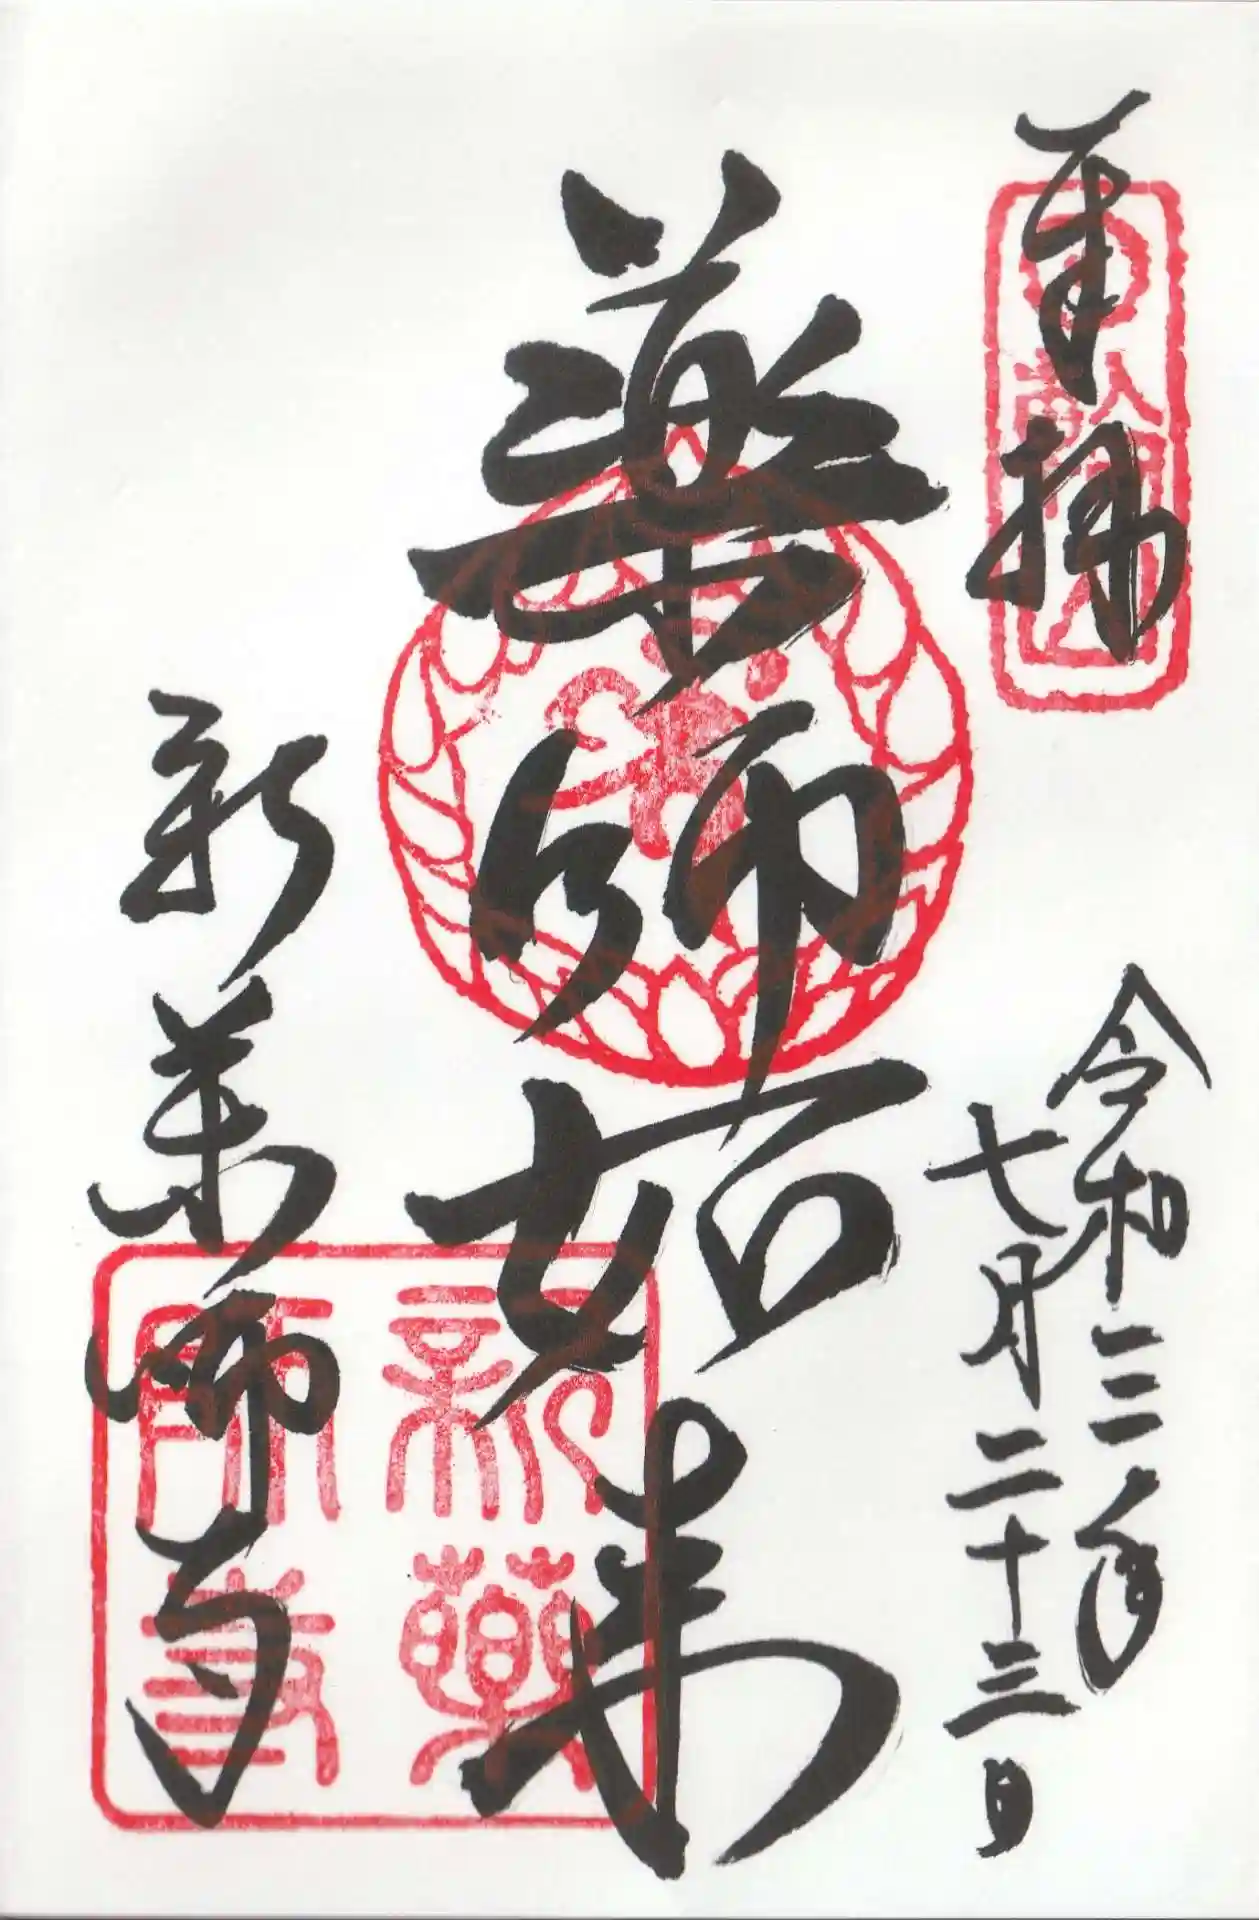 奉拝
日輪山
令和三年
七月二十三日
薬師如来
新薬師寺
新藥
師寺